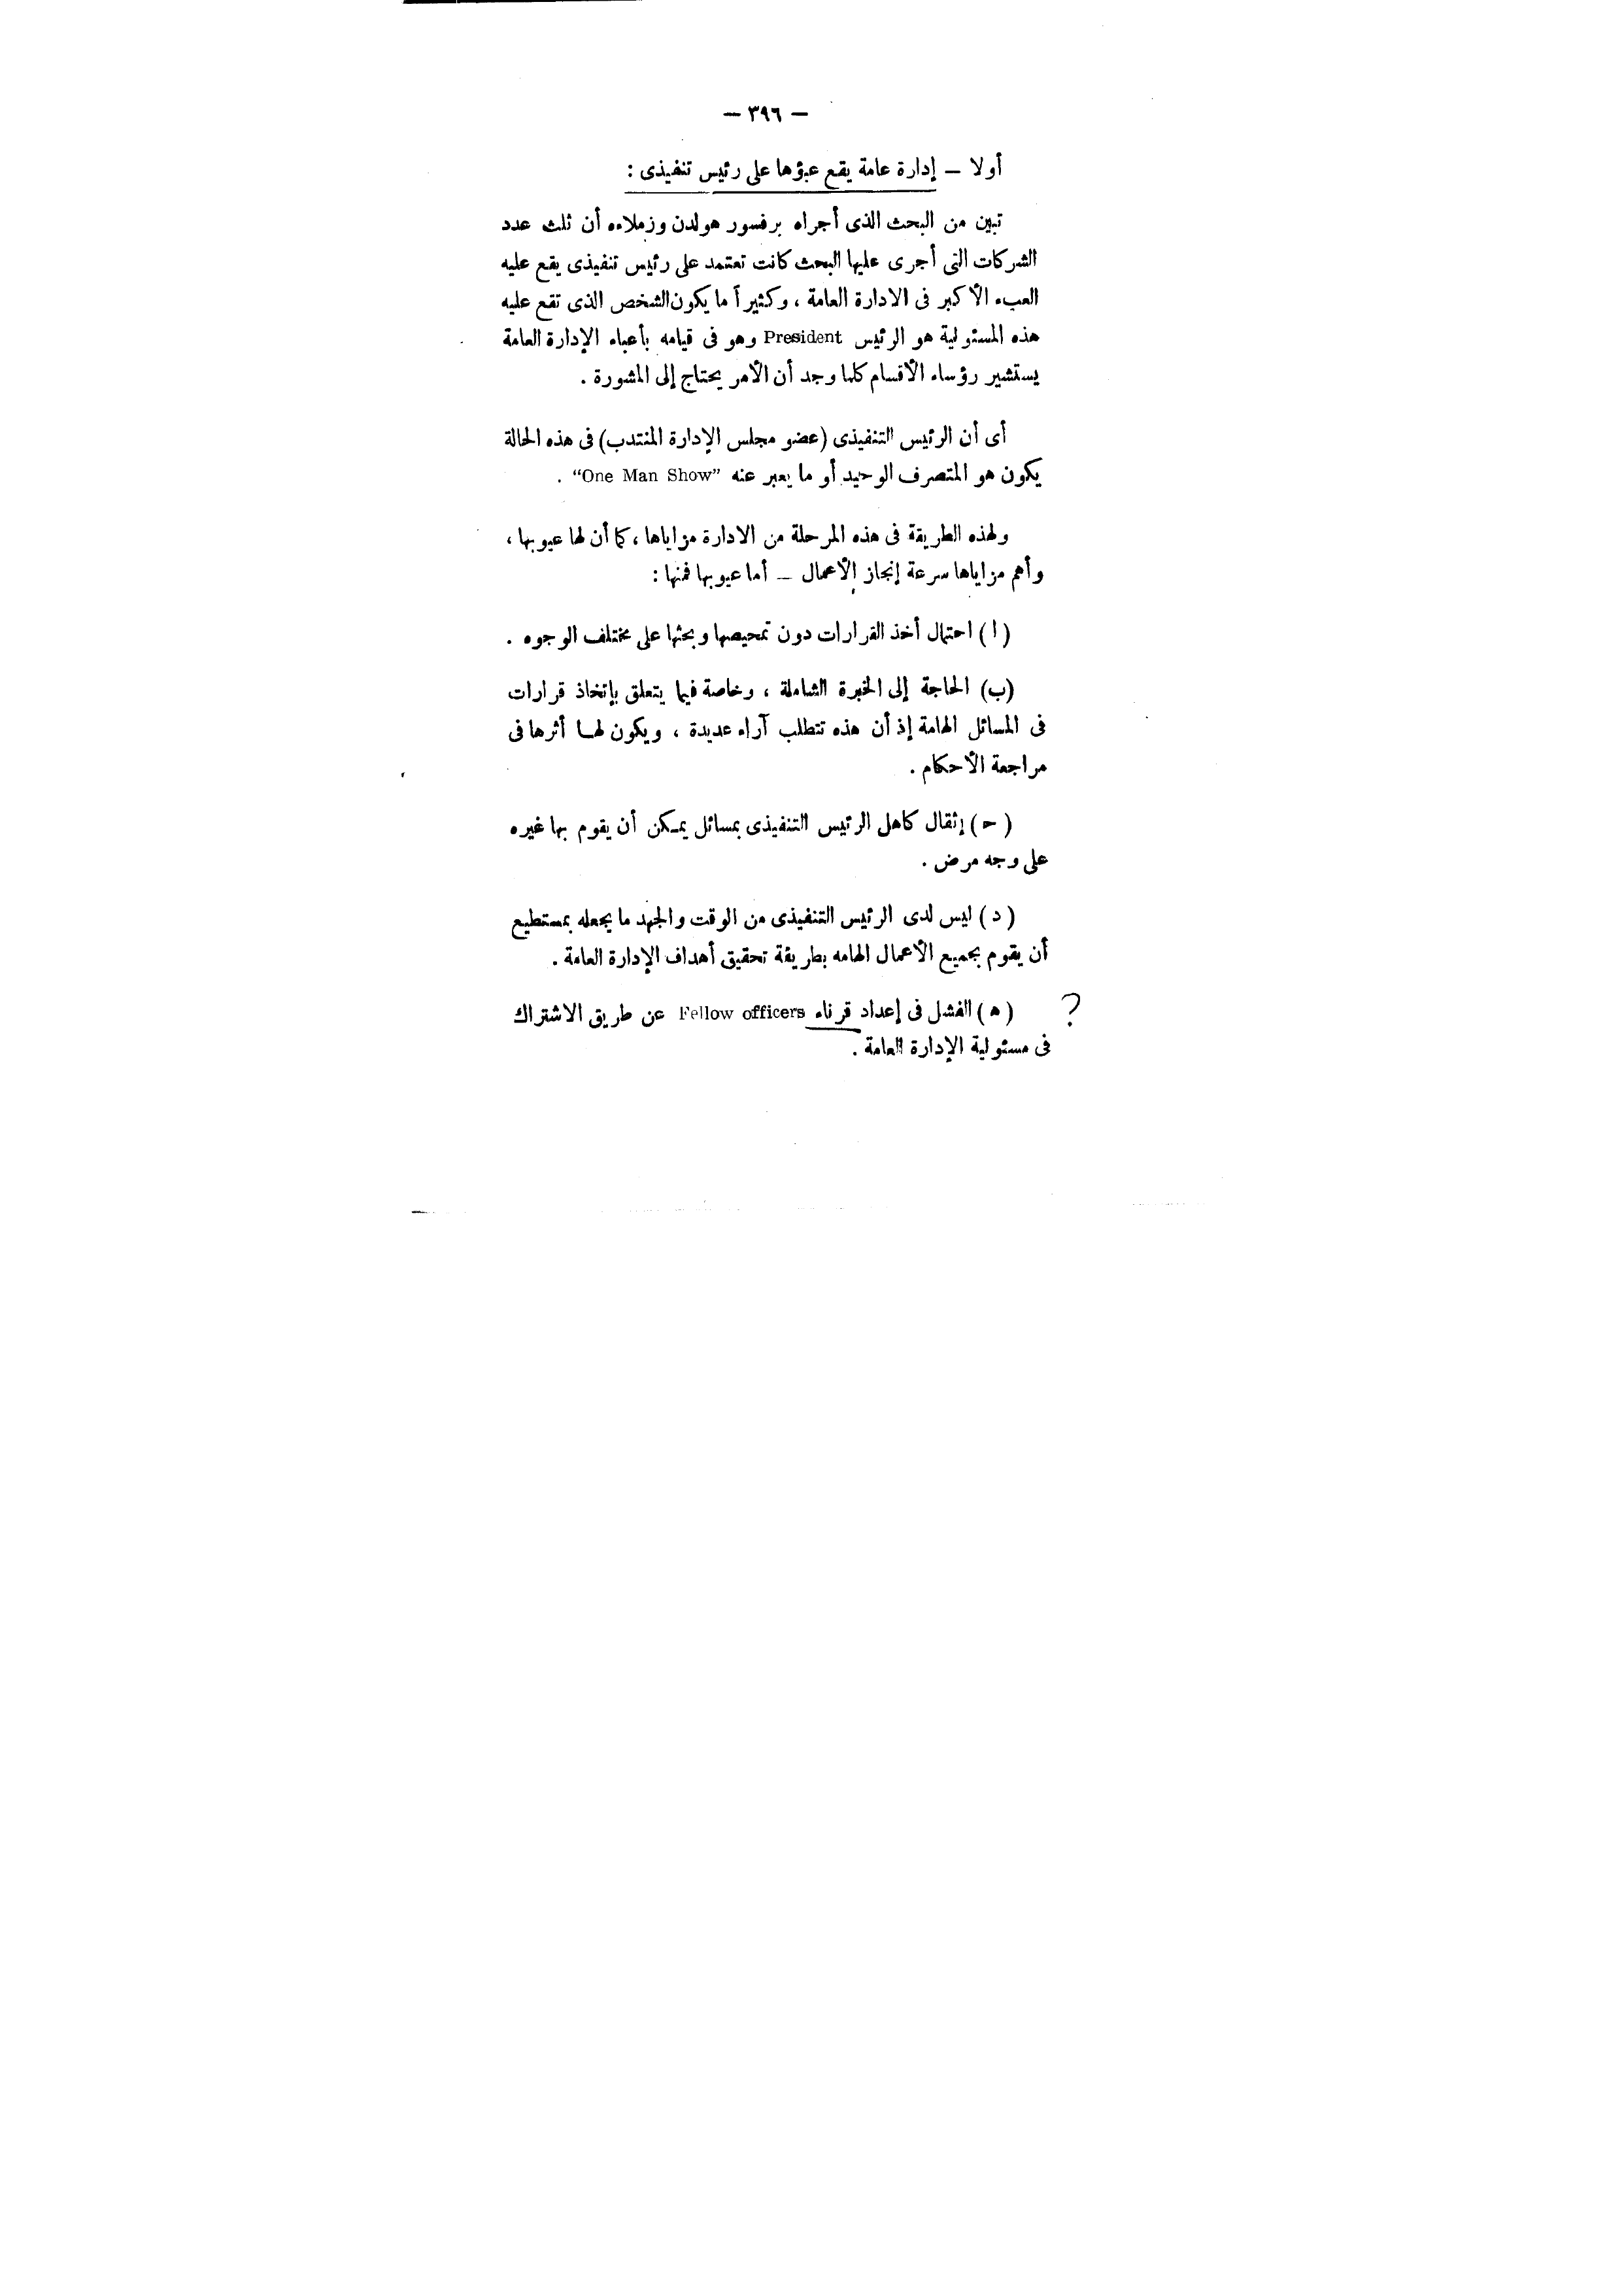 — ٣٩٦ —
أولا — إدارة عامة يقع عبؤها على رئيس تنفيذى :
تبين من البحث الذى أجراه برفسور هولدن وزملاءه أن ثلث عدد
الشركات التى أجرى عليها البحث كانت تعتمد على رئيس تنفيذى يقع عليه
العبء الأكبر فى الادارة العامة ، وكثيراً ما يكون الشخص الذى تقع عليه
هذه المسئولية هو الرئيس President وهو فى قيامه بأعباء الإدارة العامة
يستشير رؤساء الأقسام كلما وجد أن الأمر يحتاج إلى المشورة .
أى أن الرئيس التنفيذى (عضو مجلس الإدارة المنتدب) فى هذه الحالة
يكون هو المتصرف الوحيد أو ما يعبر عنه “One Man Show” .
ولهذه الطريقة فى هذه المرحلة من الادارة مزاياها ، كما أن لها عيوبها ،
وأهم مزاياها سرعة إنجاز الأعمال — أما عيوبها فمنها :
(ا) احتمال أخذ القرارات دون تمحيصها وبحثها على مختلف الوجوه .
(ب) الحاجة إلى الخبرة الشاملة ، وخاصة فيما يتعلق بإتخاذ قرارات
فى المسائل الهامة إذ أن هذه تتطلب آراء عديدة ، ويكون لهـا أثرها فى
مراجعة الأحكام .
(حـ) إثقال كاهل الرئيس التنفيذى بمسائل يمـكن أن يقوم بها غيره
على وجه مرض .
(د) ليس لدى الرئيس التنفيذى من الوقت والجهد ما يجعله بمستطيع
أن يقوم بجميع الأعمال الهامه بطريقة تحقيق أهداف الإدارة العامة .
? (ه) الفشل فى إعداد قرناء Fellow officers عن طريق الاشتراك
فى مسئولية الإدارة العامة .